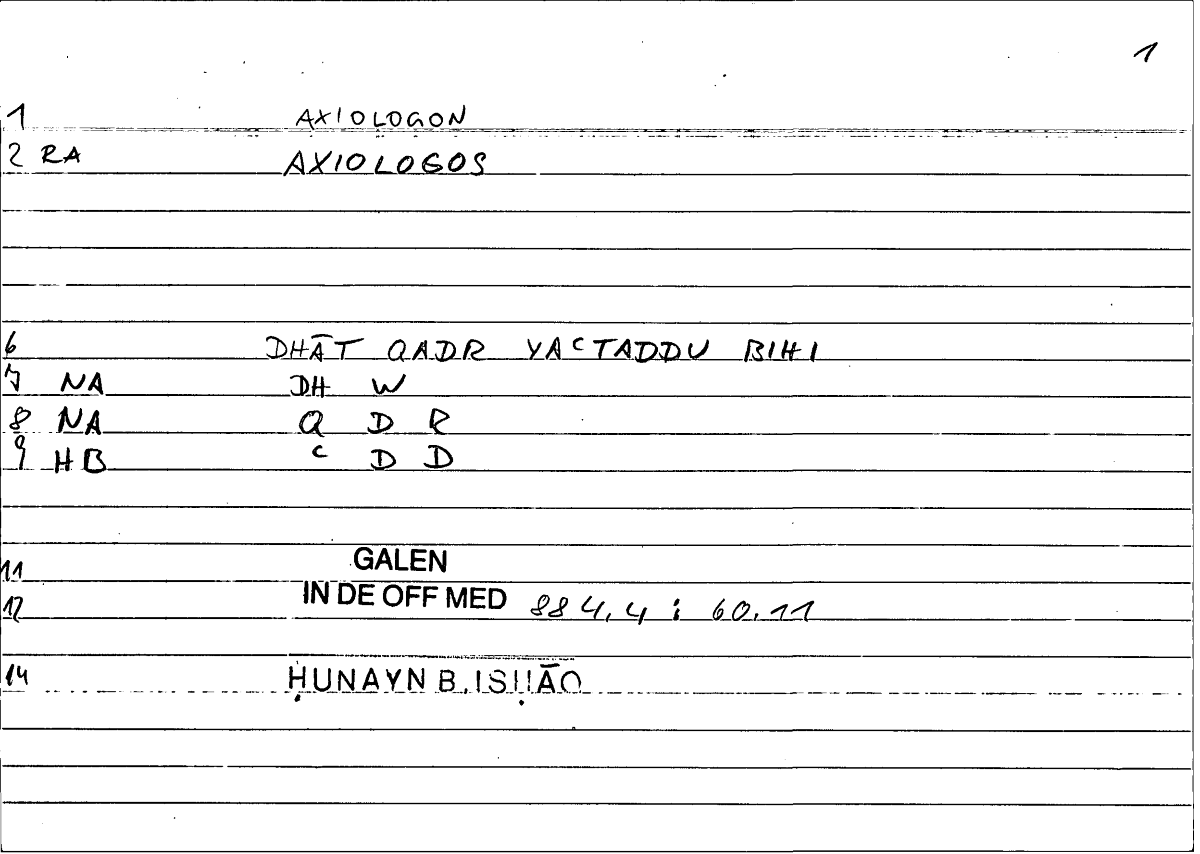 1
1 AXIOLOGON
2 RA AXIOLOGOS
6 DHĀT QADR YAᶜTADDU BIHI
7 NA DH W
8 NA Q D R
9 HB ᶜ D D
11 GALEN
12 IN DE OFF MED 884,4 : 60,11
14 ḤUNAYN B. ISḤĀQ